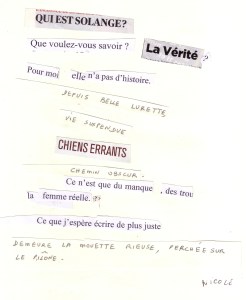 QUI EST SOLANGE?
Que voulez-vous savoir ? La Vérité ?
Pour moi elle n'a pas d'histoire.
DEPUIS BELLE LURETTE
VIE SUSPENDUE
CHIENS ERRANTS
CHEMIN OBSCUR.
Ce n'est que du manque , des trou
la femme réelle. ??
Ce que j'espère écrire de plus juste
DEMEURE LA MOUETTE RIEUSE, PERCHÉE SUR
LE PILÔNE.
NICOLE